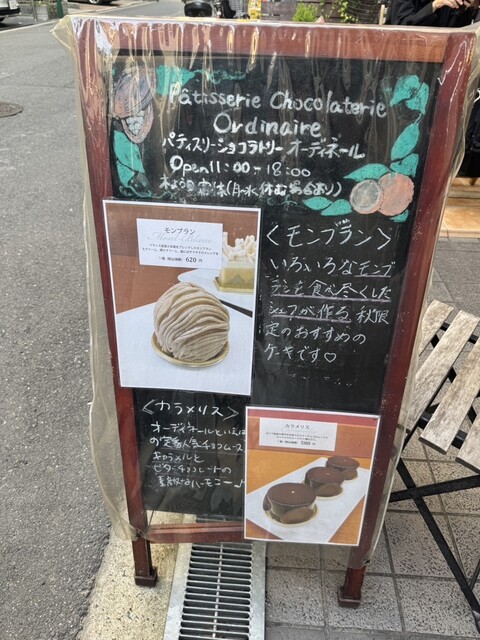 Pâtisserie Chocolaterie
Ordinaire
パティスリーショコラトリー オーディネール
Open 11:00-18:00
木よう日定休(月・水休む場合あり)
モンブラン
Mont-Blanc
620円
<モンブラン>
いろいろなモンブ
ランを食べ尽くした
シェフが作る 秋限
定のおすすめの
ケーキです♡
<カラメリス>
オーディネールといえば
の定番人気チョコムース
キャラメルと
ビターチョコレートの
素敵なハーモニー♪
カラメリス